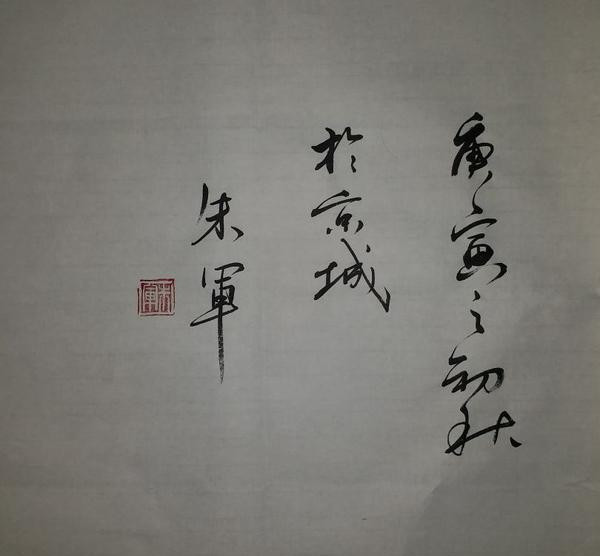 庚寅之初秋
於京城
朱軍
朱軍